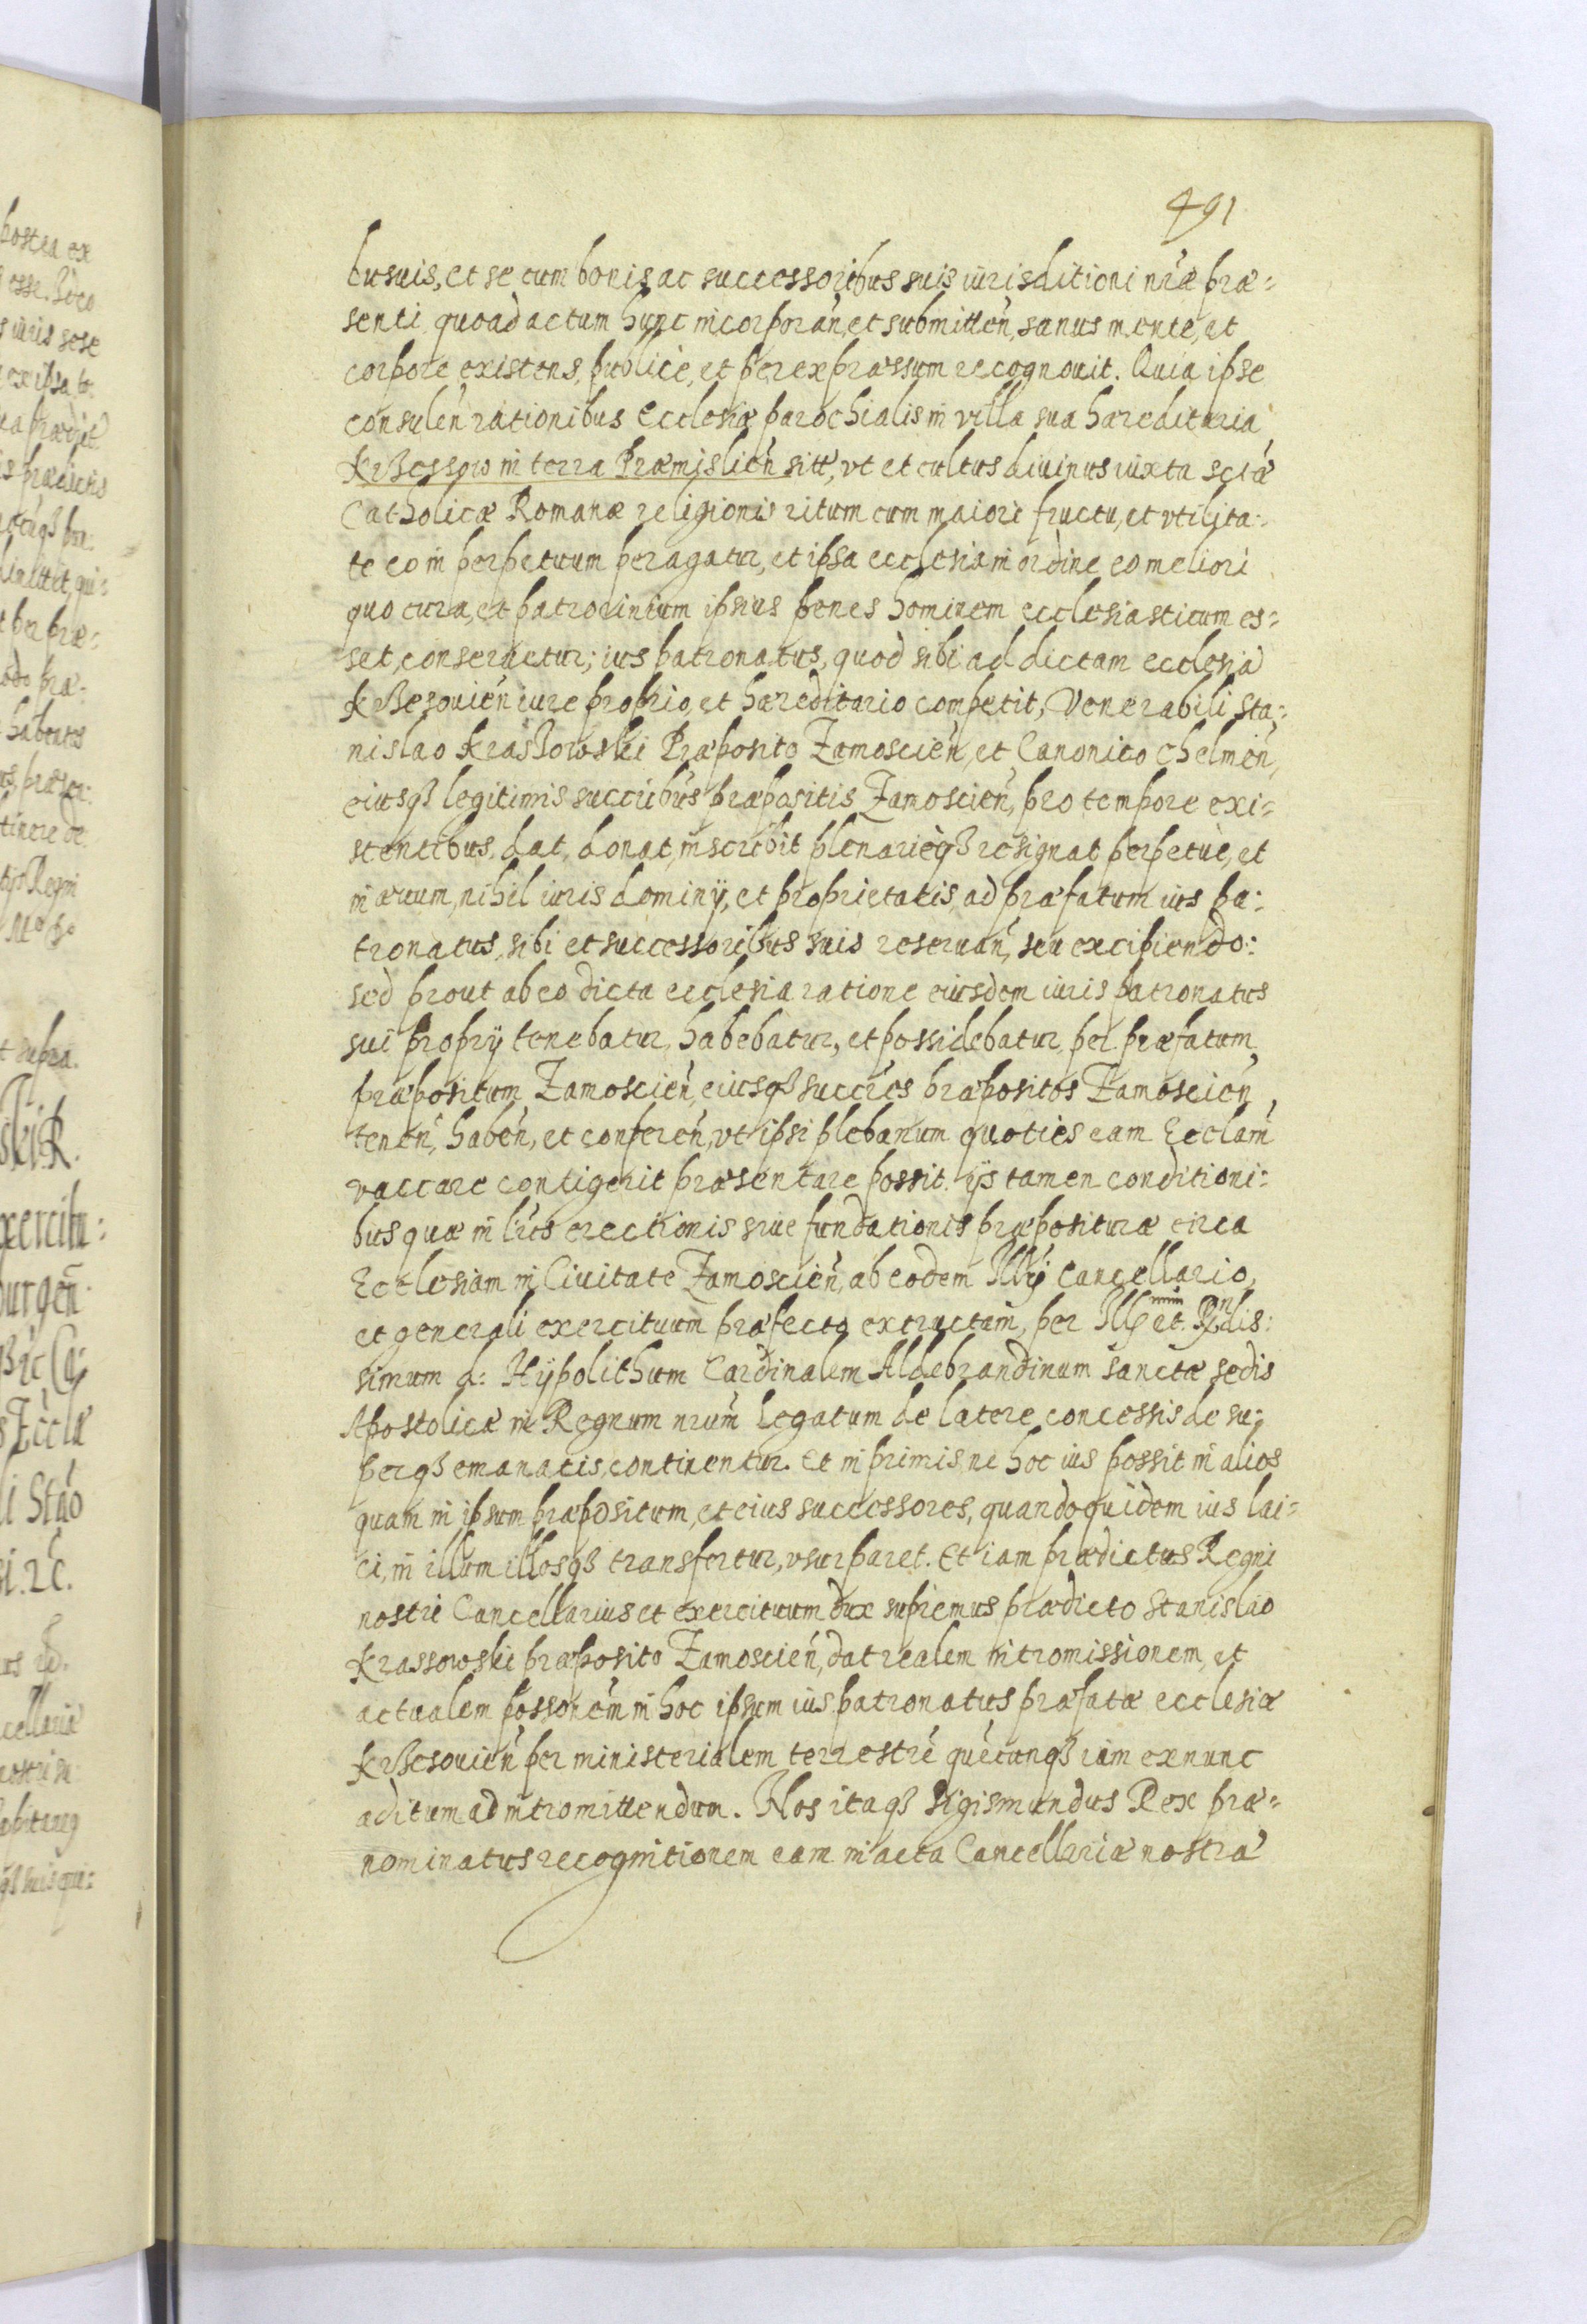 491
bus uis, et se cum bonis ac successoribus suis iurisditioni nr̃æ præ=
senti quoad actum hunc incorporań, et submitteń, sanus mente, et
corpore existens, publicè, et per expræssum recognouit. Quia ipse
consuleń rationibus Ecclesiæ parochialis in villa sua hæreditaria
Krzessow in terra Præmislień sitt, vt et cultus diuinus iuxta sctæ
Catholicæ Romanæ religionis ritum cum maiori fructu, et vtilita=
te eo in perpetuum peragatur, et ipsa ecclesia in ordine eo meliori
quo cura, et patrocinium ipsius penes hominem ecclesiasticum es=
set, conseruetur; ius patronatus, quod sibi ad dictam ecclesiã
Krzesouień iure proprio, et hæreditario competit, Venerabili Sta=
nislao Krassowski Præposito Zamoscień, et Canonico Chelmeń,
eiusqз legitimis succribus præpositis Zamoscień, pro tempore exi=
stentibus, dat, donat, inscribit plenarieqз resignat perpetuè, et
in æuum, nihil iuris dominÿ, et proprietatis, ad præfatum ius pa=
tronatus, sibi et successoribus suis reseruań, seu excipiendo:
sed prout ab eo dicta ecclesia ratione eiusdem iuris patronatus
sui propry tenebatur, habebatur, et possidebatur, per præfatum
præpositum Zamoscień, eiusqз succres præpositos Zamoscień,
teneń, habeń, et confereń, vt ipsi plebanum quoties eam Ecclam
vaccare contigerit præsentare possit. ijs tamen conditioni=
bus quæ in lr̃is erectionis siue fundationis præpositura circa
Ecclesiam in Ciuitate Zamoscień, ab eodem Illri Cancellario,
et generali exercituum præfecto extructam, per Ill^mum et R^ndis=
simum d: Hÿpolithum Cardinalem Aldebrandinum sanctæ sedis
Apostolicæ in Regnum nrum Legatum de latere concessis de su=
perqз emanatis, continentur. Et in primis ne hoc ius possit in alios
quam in ipsum præpositum, et eius successores, quandoquidem ius lai=
ci, in illum illosqз transfertur, vsurparet. Et iam prædictus Regni
nostri Cancellarius et exercituum dux supremus prædicto Stanislao
Krassowski præposito Zamoscień, dat realem intromissionem, et
actualem possonem in hoc ipsum ius patronatus præfatæ ecclesiæ
Krzesouień per ministerialem terrestrẽ quẽcunqз iam ex nunc
aditum ad intromittendum. Nos itaqз Sigismundus Rex præ=
nominatus recognitionem eam in acta Cancellariæ nostræ